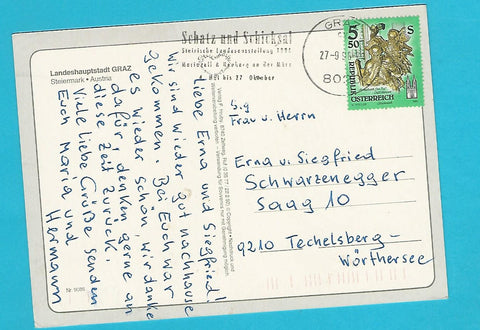 Landeshauptstadt GRAZ
Steiermark · Austria
Schatz und Schicksal
Steirische Landesausstellung 1996
Mariazell & Neuberg an der Mürz
Mai bis 27 Oktober
GRAZ
27-9
80
5
50
S
REPUBLIK
ÖSTERREICH
liebe Erna und Siegfried!
Wir sind wieder gut nachhause
gekommen. Bei Euch war
es wieder schön, wir danke
dafür, denken gerne an
diese Zeit zurück.
Viele liebe Grüße senden
Euch Maria und
Hermann
Frau u. Herrn
Erna u. Siegfried
Schwarzenegger
Saag 10
9210 Techelsberg-
Wörthersee